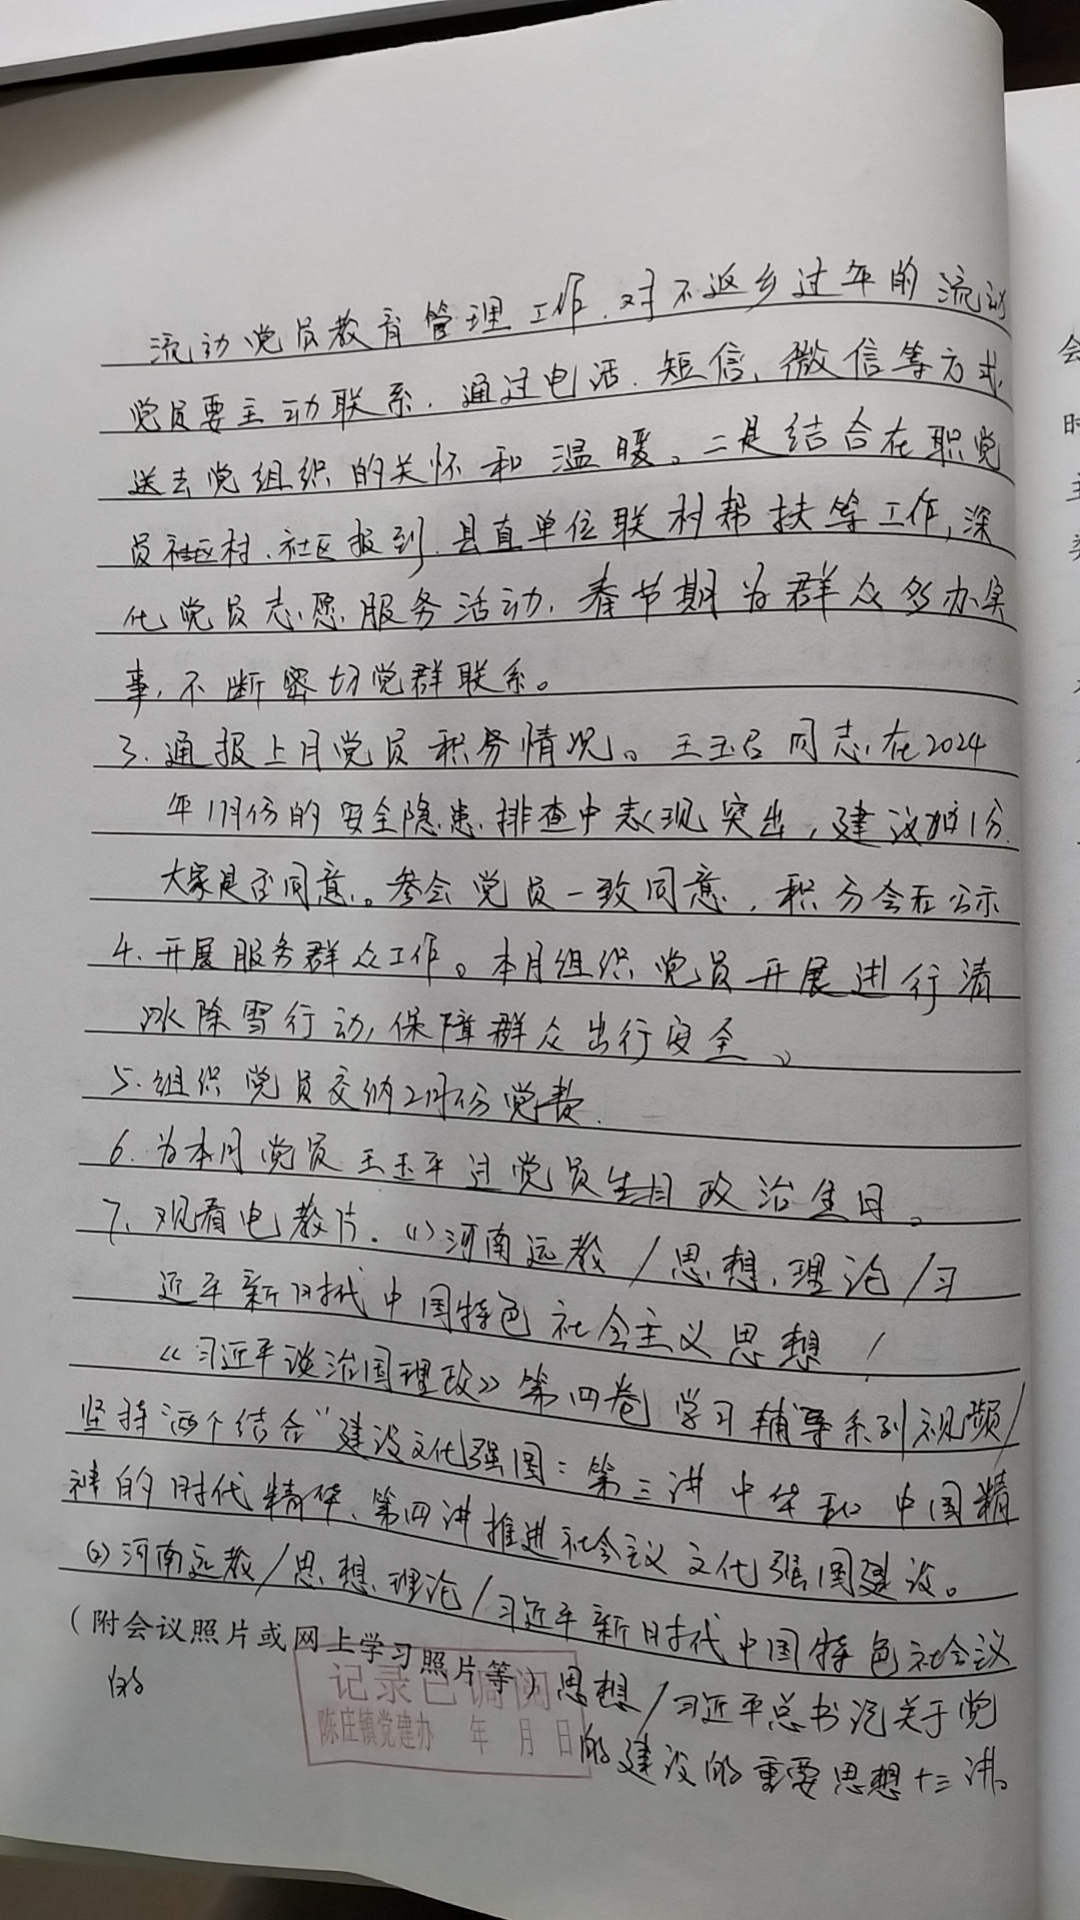 流动党员教育管理工作.对不返乡过年的流动
党员要主动联系.通过电话.短信、微信等方式,
送去党组织的关怀和温暖。二是结合在职党
员社区村、社区报到.县直单位联村帮扶等工作,深
化党员志愿服务活动,春节期为群众多办实
事,不断密切党群联系。
3.通报上月党员积分情况。王玉君同志在2024
年1月份的安全隐患排查中表现突出,建议加1分.
大家是否同意。参会党员一致同意,积分会在公示
4.开展服务群众工作。本月组织党员开展进行清
冰除雪行动,保障群众出行安全。
5.组织党员交纳2月份党费.
6.为本月党员王玉平过党员生日政治生日。
7、观看电教片.(1)河南远教/思想.理论/习
近平新时代中国特色社会主义思想/
《习近平谈治国理政》第四卷学习辅导系列视频/
坚持"两个结合"建设文化强国:第三讲中华和中国精
神的时代精华、第四讲推进社会主义文化强国建设。
(2)河南远教/思想.理论/习近平新时代中国特色社会议
(附会议照片或网上学习照片等)思想/习近平总书记关于党
的
的建设的重要思想十三讲。
记录已调阅
陈庄镇党建办 年 月 日
会
时